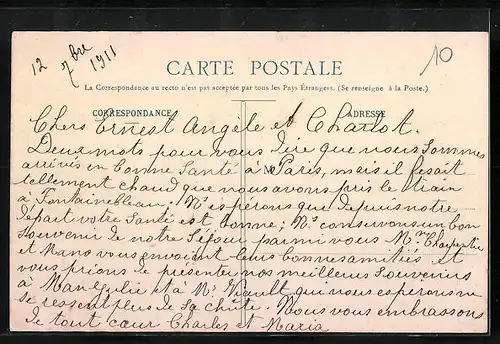 12 7bre 1911
10
CARTE POSTALE
La Correspondance au recto n'est pas acceptée par tous les Pays Étrangers. (Se renseigner à la Poste.)
CORRESPONDANCE
ADRESSE
Chers Ernest Angèle et Charlot.
Deux mots pour vous dire que nous sommes
arrivés en bonne Santé à Paris, mais il fesait
tellement chaud que nous avons pris le train
à Fontainebleau; Ns espérons que depuis notre
départ votre Santé est bonne; Ns conservons un bon
Souvenir de notre Séjour parmi vous Mme Charpentier
et Mano vous envoient leurs bonnes amitiés et
vous prions de présenter nos meilleurs Souvenirs
à et à Mr qui nous espérons ne
se ressent plus de sa chute. Nous vous embrassons
de tout cœur Charles et Maria